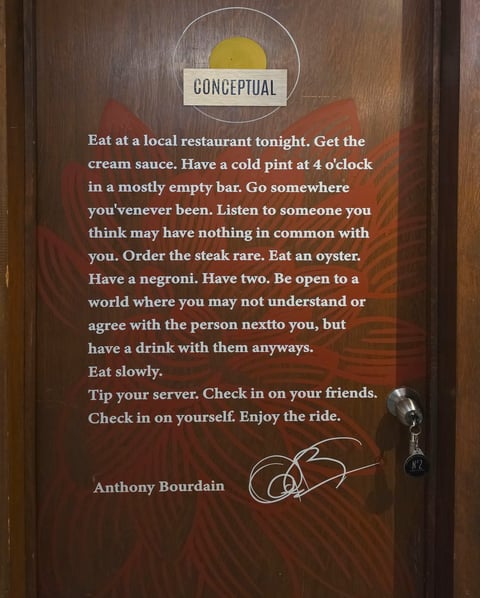 CONCEPTUAL
Eat at a local restaurant tonight. Get the
cream sauce. Have a cold pint at 4 o'clock
in a mostly empty bar. Go somewhere
you'venever been. Listen to someone you
think may have nothing in common with
you. Order the steak rare. Eat an oyster.
Have a negroni. Have two. Be open to a
world where you may not understand or
agree with the person nextto you, but
have a drink with them anyways.
Eat slowly.
Tip your server. Check in on your friends.
Check in on yourself. Enjoy the ride.
Anthony Bourdain
Nº2